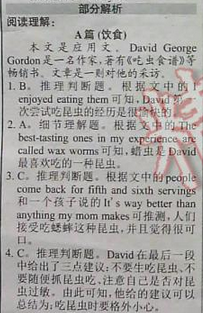 部分解析
阅读理解：
A篇(饮食)
本文是应用文。David George
Gordon是一名作家,若有《吃虫食谱》等
畅销书。文章是一则对他的采访。
1. B。推理判断题。根据文中的 I
enjoyed eating them 可知, David
次尝试吃昆虫的经历是很愉快的
2. A。细节理解题。根据文中的The
best-tasting ones in my experience are
called wax worms 可知,蜡虫是 David
最喜欢吃的一种昆虫。
3. C。推理判断题。根据文中的people
come back for fifth and sixth servings
和一个孩子说的It's way better than
anything my mom makes可推测,人们
接受吃蟋蟀这种昆虫,并且觉得很可
口。
4. C。推理判断题。David在最后一段
中给出了三点建议:不要生吃昆虫、不
要随便抓昆虫吃、注意自己是否对昆
虫过敏。由此可知,他给的建议可以
总结为:吃昆虫时要格外小心。